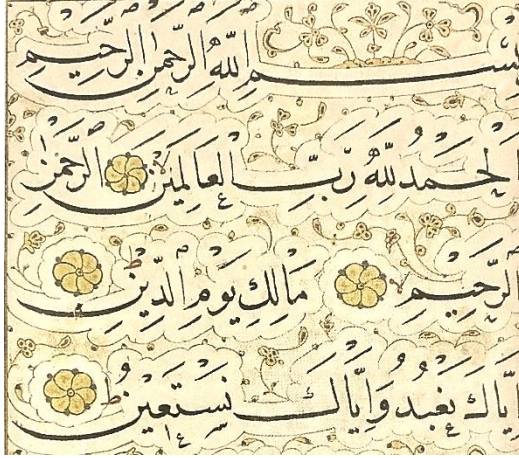 بِسْمِ اللّٰهِ الرَّحْمٰنِ الرَّحِيمِ
اَلْحَمْدُ لِلّٰهِ رَبِّ الْعَالَمِينَ الرَّحْمٰنِ
الرَّحِيمِ مَالِكِ يَوْمِ الدِّينِ
اِيَّاكَ نَعْبُدُ وَاِيَّاكَ نَسْتَعِينُ